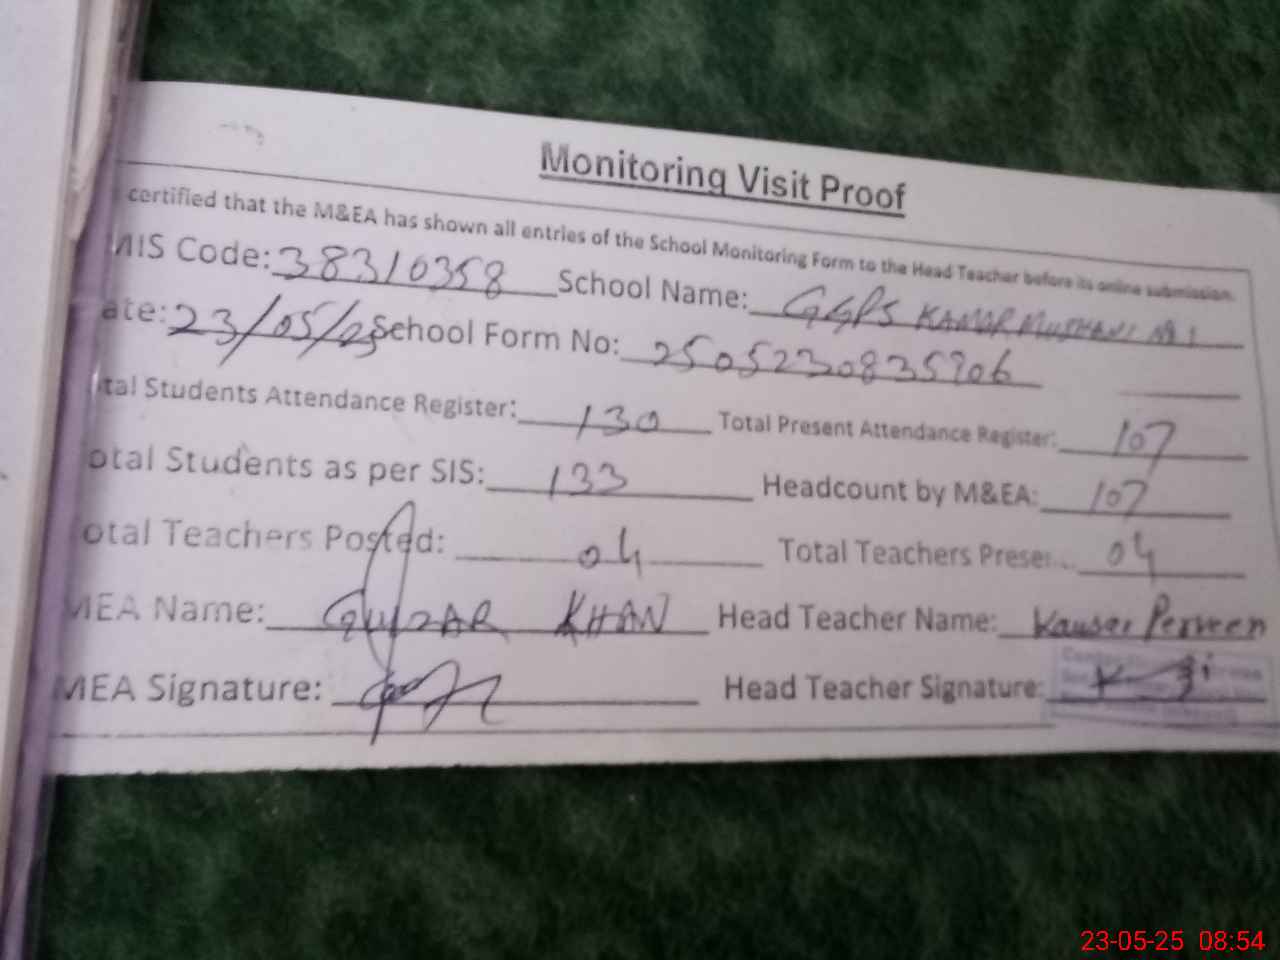 Monitoring Visit Proof
certified that the M&EA has shown all entries of the School Monitoring Form to the Head Teacher before its online submission.
MIS Code: 38310358 School Name: GGPS KAMAR MUSHANI NO 1
ate: 23/05/25 School Form No: 2505230835906
tal Students Attendance Register: 130 Total Present Attendance Register: 107
otal Students as per SIS: 133 Headcount by M&EA: 107
otal Teachers Posted: 04 Total Teachers Presen... 04
MEA Name: GULZAR KHAN Head Teacher Name: Kausar Perveen
MEA Signature: Head Teacher Signature:
23-05-25 08:54